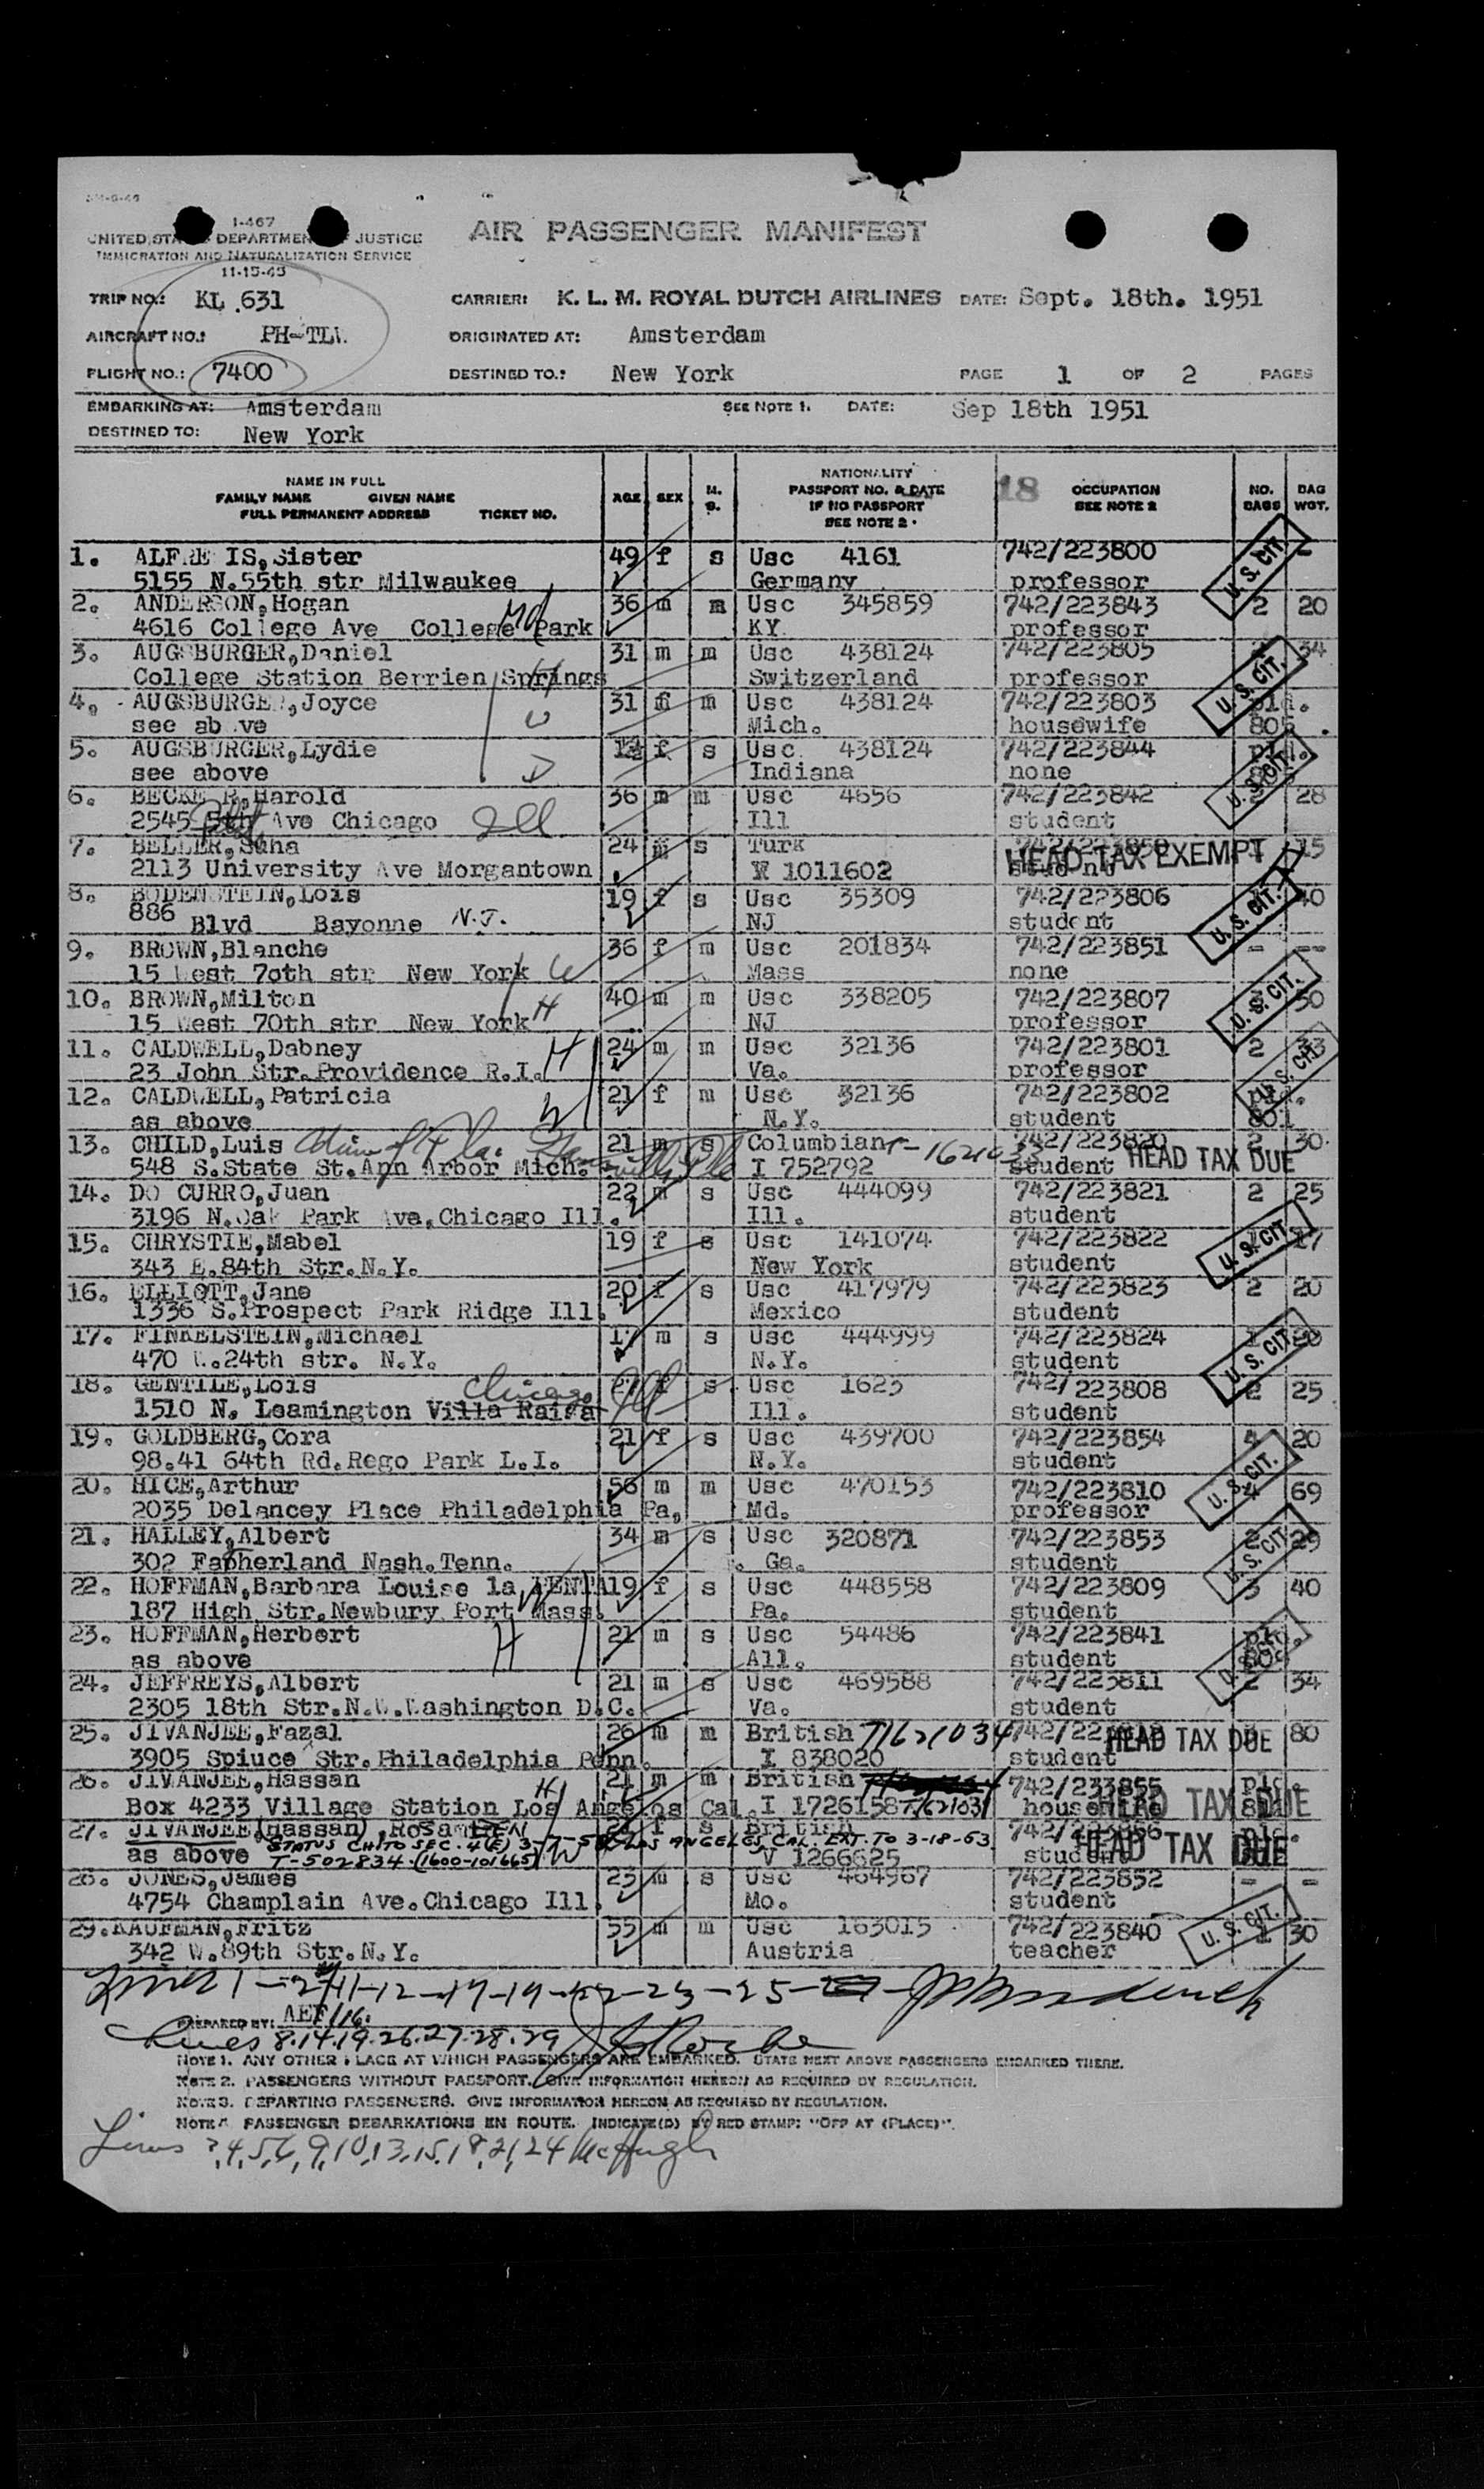 I-467
UNITED STATES DEPARTMENT OF JUSTICE
IMMIGRATION AND NATURALIZATION SERVICE
11-15-45
AIR PASSENGER MANIFEST
TRIP NO.: KL 631 CARRIER: K. L. M. ROYAL DUTCH AIRLINES DATE: Sept. 18th. 1951
AIRCRAFT NO.: PH-TL ORIGINATED AT: Amsterdam
FLIGHT NO.: 7400 DESTINED TO.: New York PAGE 1 OF 2 PAGES
EMBARKING AT: Amsterdam SEE NOTE 1. DATE: Sep 18th 1951
DESTINED TO: New York
NAME IN FULL
FAMILY NAME GIVEN NAME
FULL PERMANENT ADDRESS TICKET NO.
AGE SEX M. S.
NATIONALITY
PASSPORT NO. & DATE
IF NO PASSPORT
SEE NOTE 2.
18 OCCUPATION
SEE NOTE 2
NO. BAGS
BAG WGT.
1. ALFRE IS, Sister 49 f s Usc 4161 742/223800 U. S. CIT.
5155 N.55th str Milwaukee Germany professor
2. ANDERSON, Hogan 36 m m Usc 345859 742/223843 2 20
4616 College Ave College Park Md KY professor
3. AUGSBURGER, Daniel 31 m m Usc 438124 742/223805 34
College Station Berrien Springs H Switzerland professor U. S. CIT.
4. AUGSBURGER, Joyce 31 f m Usc 438124 742/223803 pld.
see above W Mich. housewife 805
5. AUGSBURGER, Lydie f s Usc 438124 742/223844
see above D Indiana none U. S. CIT.
6. BECKER, Harold 36 m m Usc 4656 742/223842 2 28
2545 5th Ave Chicago Ill Ill student
7. BELLER, Suha 24 m s Turk 15
2113 University Ave Morgantown W 1011602 student HEAD TAX EXEMPT
8. BODENSTEIN, Lois 19 f s Usc 35309 742/223806 40
886 Blvd Bayonne N.J. NJ student U. S. CIT.
9. BROWN, Blanche 36 f m Usc 201834 742/223851 - --
15 West 70th str New York W Mass none
10. BROWN, Milton 40 m m Usc 338205 742/223807 50
15 West 70th str New York H NJ professor U. S. CIT.
11. CALDWELL, Dabney H 24 m m Usc 32136 742/223801 2 33
23 John Str. Providence R.I. Va. professor
12. CALDWELL, Patricia 21 f m Usc 32136 742/223802 pld. U. S. CIT.
as above W N.Y. student 801
13. CHILD, Luis 21 m s Columbian T-1621033 742/223820 2 30
548 S.State St. Ann Arbor Mich. I 752792 student HEAD TAX DUE
14. DO CURRO, Juan 22 m s Usc 444099 742/223821 2 25
3196 N.Oak Park Ave. Chicago Ill. Ill. student
15. CHRYSTIE, Mabel 19 f s Usc 141074 742/223822 17
343 E.84th Str.N.Y. New York student U. S. CIT.
16. ELLIOTT, Jane 20 f s Usc 417979 742/223823 2 20
1336 S.Prospect Park Ridge Ill. Mexico student
17. FINKELSTEIN, Michael 17 m s Usc 444999 742/223824 1 20
470 W.24th str. N.Y. N.Y. student U. S. CIT.
18. GENTILE, Lois Chicago Ill 27 f s Usc 1623 742/223808 2 25
1510 N. Leamington Villa Ill. student
19. GOLDBERG, Cora 21 f s Usc 439700 742/223854 4 20
98.41 64th Rd. Rego Park L.I. N.Y. student
20. HICE, Arthur 56 m m Usc 470153 742/223810 4 69
2035 Delancey Place Philadelphia Pa. Md. professor U. S. CIT.
21. HALLEY, Albert 34 m s Usc 320871 742/223853 2 29
302 Fatherland Nash. Tenn. Ga. student U. S. CIT.
22. HOFFMAN, Barbara Louise la 19 f s Usc 448558 742/223809 3 40
187 High Str. Newbury Port Mass. W Pa. student
23. HOFFMAN, Herbert 21 m s Usc 54486 742/223841 pld.
as above H All. student 809
24. JEFFREYS, Albert 21 m s Usc 469588 742/223811 2 34
2305 18th Str.N.W. Washington D.C. Va. student U. S. CIT.
25. JIVANJEE, Fazal 26 m m British T1621034 80
3905 Spiuce Str. Philadelphia Penn. I 838020 student HEAD TAX DUE
26. JIVANJEE, Hassan H 21 m m British 742/233855 pld.
Box 4233 Village Station Los Angelos Cal. I 1726158 housewife HEAD TAX DUE
27. JIVANJEE (Hassan), f s British 742/223866 pld.
STATUS CH. TO SEC. 4(E) LOS ANGELES, CAL. EXT. TO 3-18-53
as above T-502834 (1600-101665) W V 1266625 student HEAD TAX DUE
28. JONES, James 23 m s Usc 464967 742/223852 - -
4754 Champlain Ave. Chicago Ill. Mo. student
29. KAUFMAN, Fritz 55 m m Usc 163015 742/223840 1 30
342 W.89th Str.N.Y. Austria teacher U. S. CIT.
Lines 1-2-11-12-17-19-22-23-25-
PREPARED BY: AEF/16.
Lines 8.14.19.26.27.28.29
NOTE 1. ANY OTHER PLACE AT WHICH PASSENGERS ARE EMBARKED. STATE NEXT ABOVE PASSENGERS EMBARKED THERE.
NOTE 2. PASSENGERS WITHOUT PASSPORT. GIVE INFORMATION HEREON AS REQUIRED BY REGULATION.
NOTE 3. DEPARTING PASSENGERS. GIVE INFORMATION HEREON AS REQUIRED BY REGULATION.
NOTE 4. PASSENGER DEBARKATIONS EN ROUTE. INDICATE(D) BY RED STAMP: "OFF AT (PLACE)".
Lines 3,4,5,6,9,10,13,15,18,21,24 McHugh